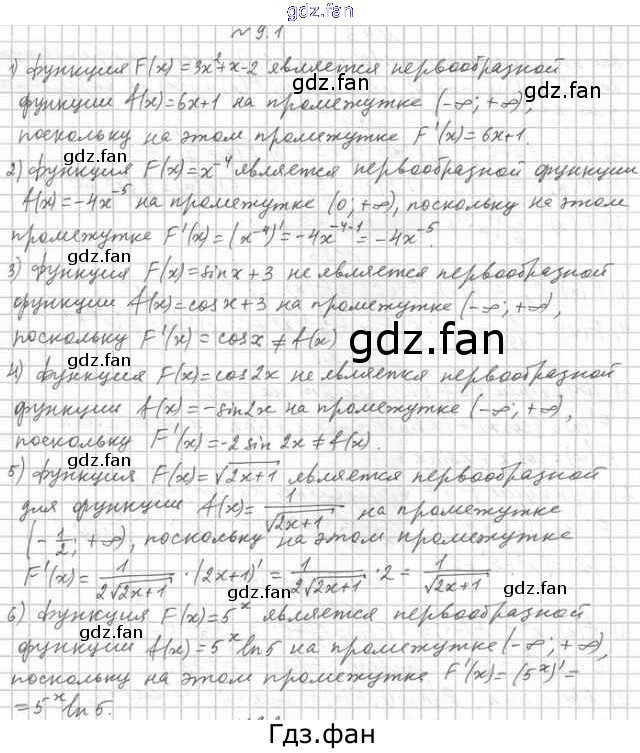 gdz.fan
№ 9.1
1) Функция F(x) = 3x²+x-2 является первообразной
gdz.fan gdz.fan
функции f(x)=6x+1 на промежутке (-∞; +∞),
поскольку на этом промежутке F'(x)=6x+1.
gdz.fan gdz.fan
2) Функция F(x)=x⁻⁴ является первообразной функции
f(x)=-4x⁻⁵ на промежутке (0; +∞), поскольку на этом
gdz.fan gdz.fan
промежутке F'(x)=(x⁻⁴)'=-4x⁻⁴⁻¹=-4x⁻⁵.
3) Функция F(x)=sinx+3 не является первообразной
gdz.fan
функции f(x)=cosx+3 на промежутке (-∞; +∞),
поскольку F'(x)=cosx≠f(x)
gdz.fan
gdz.fan
4) Функция F(x)=cos2x не является первообразной
gdz.fan
функции f(x)=-sin2x на промежутке (-∞; +∞),
поскольку F'(x)=-2sin 2x≠f(x).
gdz.fan gdz.fan
5) Функция F(x)=√(2x+1) является первообразной
для функции f(x)=1/√(2x+1) на промежутке
gdz.fan gdz.fan
(-1/2; +∞), поскольку на этом промежутке
F'(x)=1/(2√(2x+1))·(2x+1)'=1/(2√(2x+1))·2=1/√(2x+1)
gdz.fan gdz.fan
6) Функция F(x)=5ˣ является первообразной
функции f(x)=5ˣln5 на промежутке (-∞; +∞),
gdz.fan gdz.fan
поскольку на этом промежутке F'(x)=(5ˣ)'=
=5ˣln5.
Гдз.фан